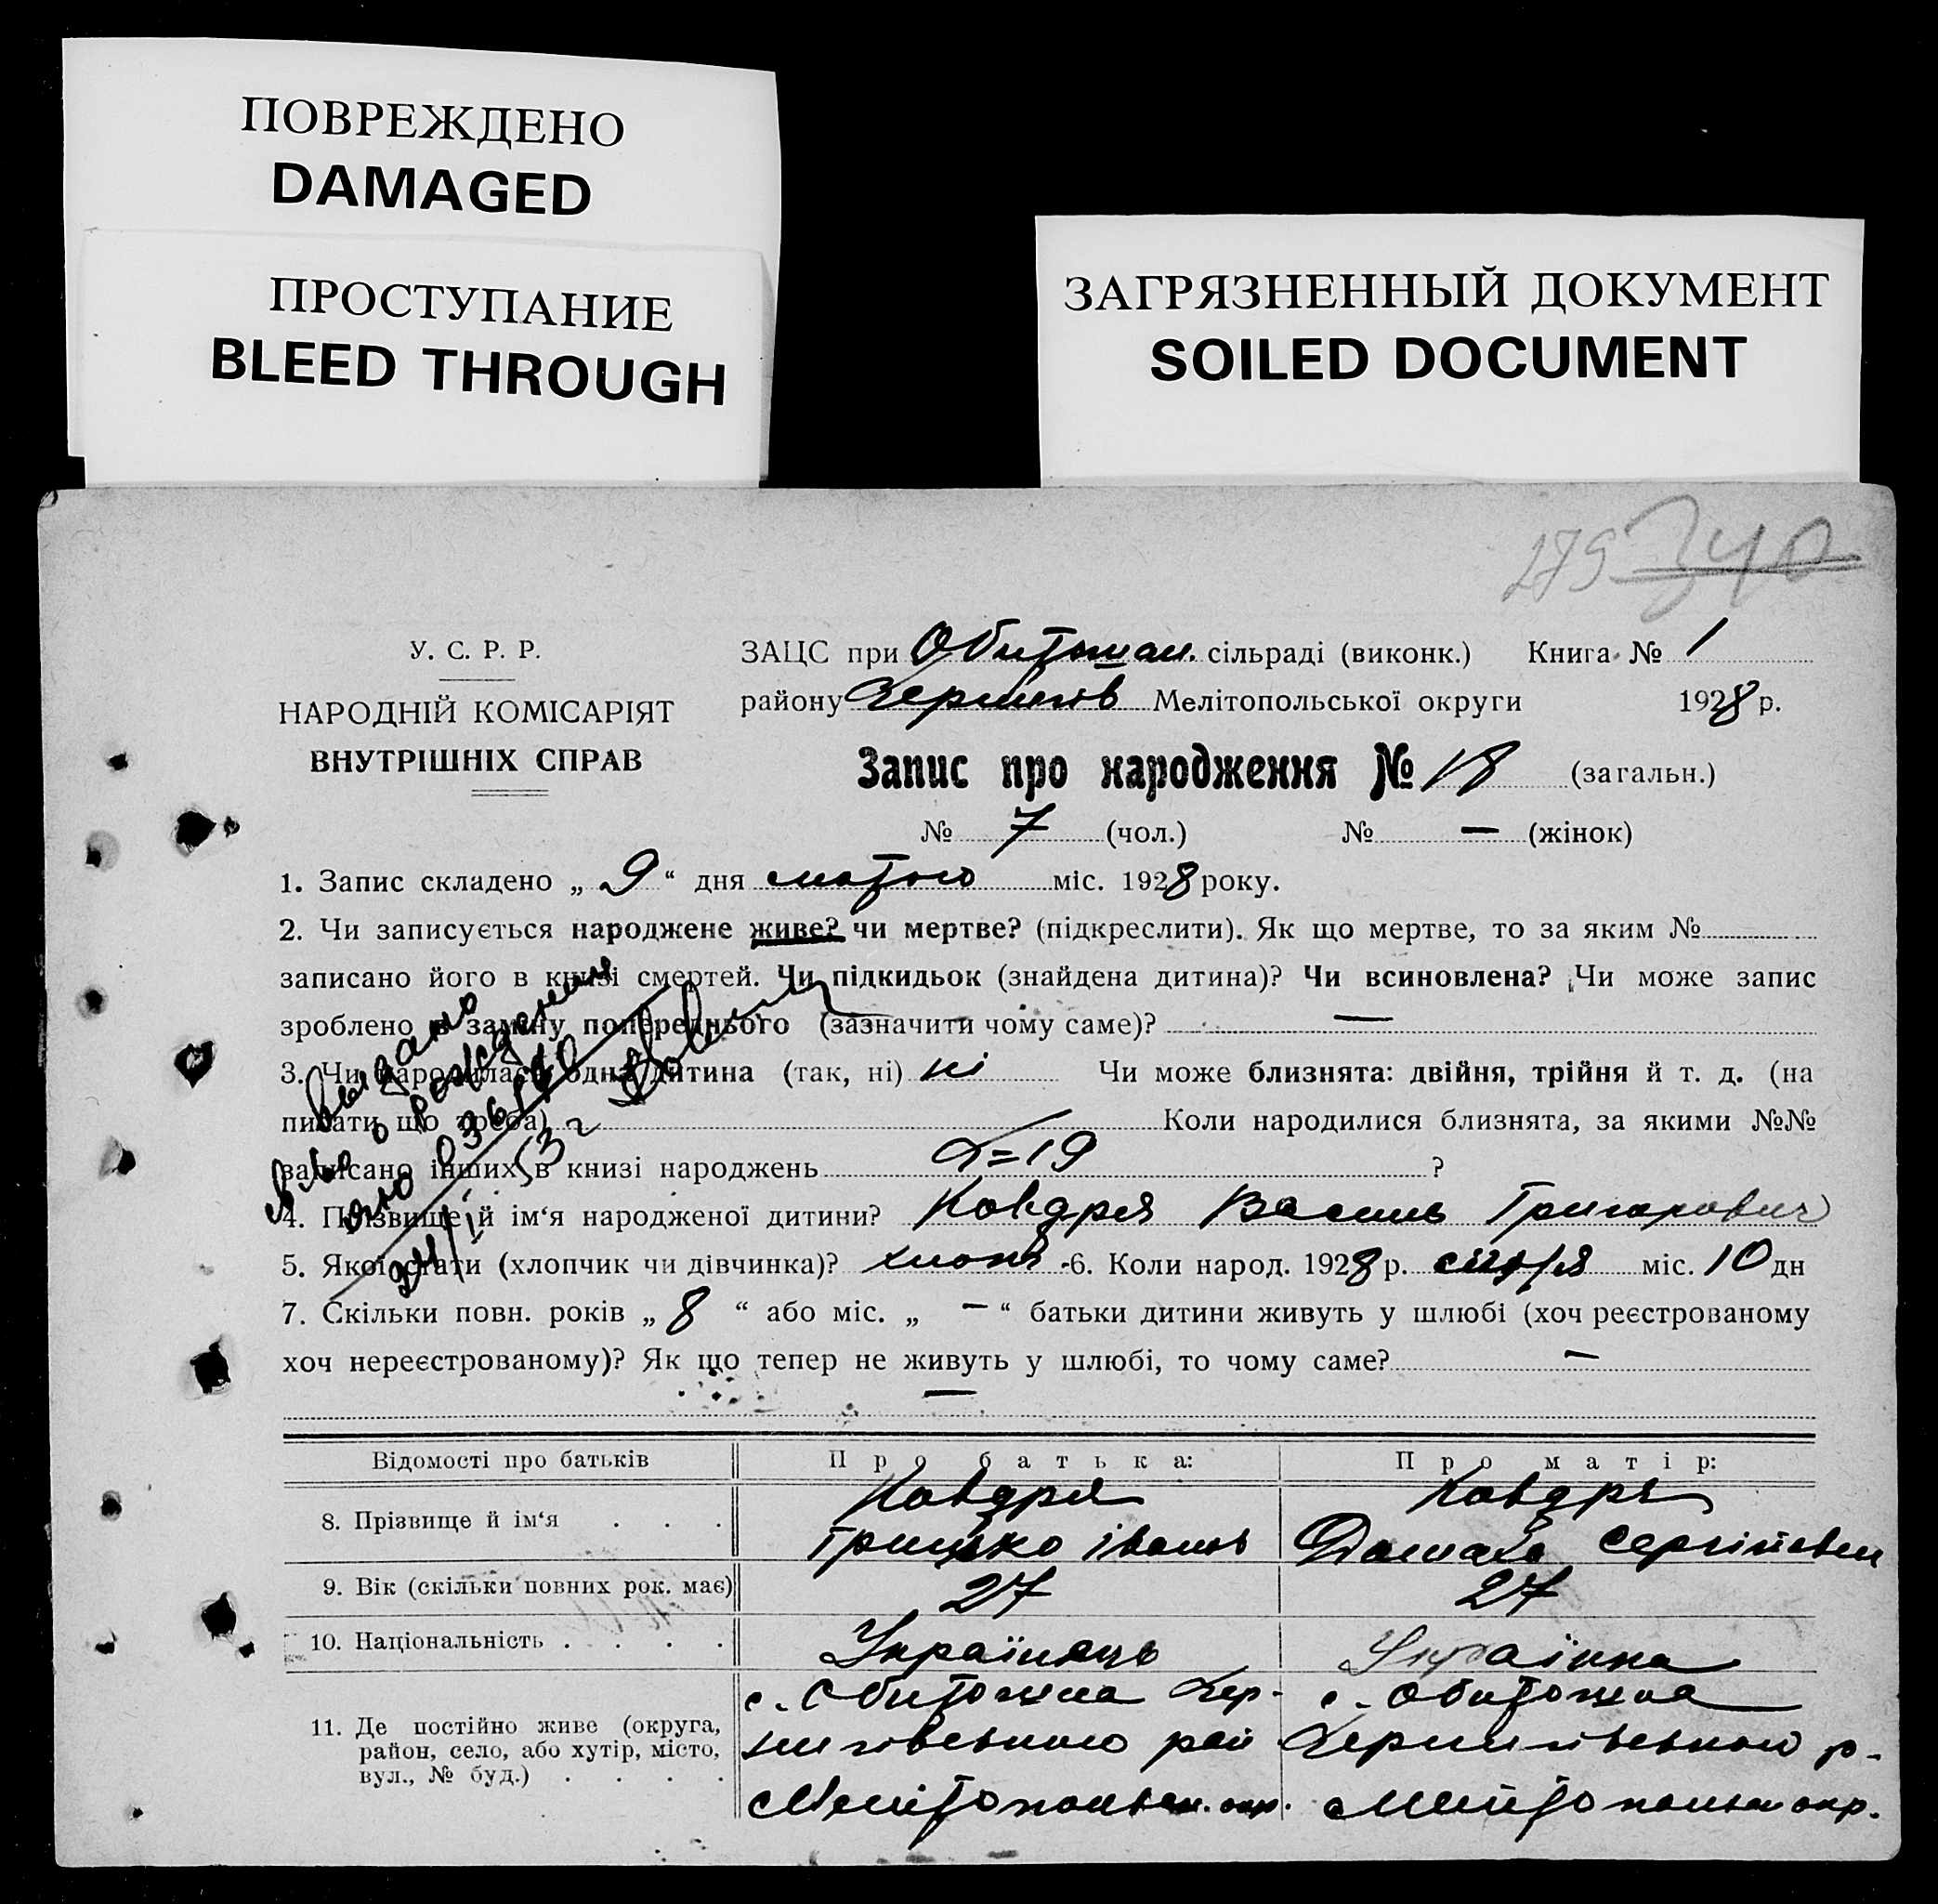 ПОВРЕЖДЕНО
DAMAGED
ПРОСТУПАНИЕ
BLEED THROUGH
ЗАГРЯЗНЕННЫЙ ДОКУМЕНТ
SOILED DOCUMENT
279 340
У. С. Р. Р.
НАРОДНІЙ КОМІСАРІЯТ
ВНУТРІШНІХ СПРАВ
ЗАЦС при Обиточан. сільраді (виконк.) Книга № 1
району Чернигів Мелітопольської округи 1928 р.
Запис про народження № 18 (загальн.)
№ 7 (чол.) № — (жінок)
1. Запис складено „ 9 “ дня лютого міс. 1928 року.
2. Чи записується народжене живе? чи мертве? (підкреслити). Як що мертве, то за яким №
записано його в книзі смертей. Чи підкидьок (знайдена дитина)? Чи всиновлена? Чи може запис
зроблено в заміну попереднього (зазначити чому саме)? —
3. Чи народилась одна дитина (так, ні) ні Чи може близнята: двійня, трійня й т. д. (на
писати що треба) Коли народилися близнята, за якими №№
записано інших в книзі народжень 2=19 ?
4. Прізвище й ім‘я народженої дитини? Ковдря Василь Григорович
5. Якої стати (хлопчик чи дівчинка)? хлопч. 6. Коли народ. 1928 р. січня міс. 10 дн
7. Скільки повн. років „ 8 “ або міс. „ — “ батьки дитини живуть у шлюбі (хоч реєстрованому
хоч нереєстрованому)? Як що тепер не живуть у шлюбі, то чому саме? —
—
Выдано
о рождении
Відомості про батьків Про батька: Про матір:
8. Прізвище й ім‘я . . . Ковдря Ковдря
Грицько Іванов Домаха Сергійовн
9. Вік (скільки повних рок. має) 27 27
10. Національність . . . . Українець Українка
11. Де постійно живе (округа, район, село, або хутір, місто, вул., № буд.) . . . .
с. Обиточна Чер-
нигівського рай
Мелітопольск. окр.
с. Обиточна
Чернигівського р-
Мелітопольск окр.